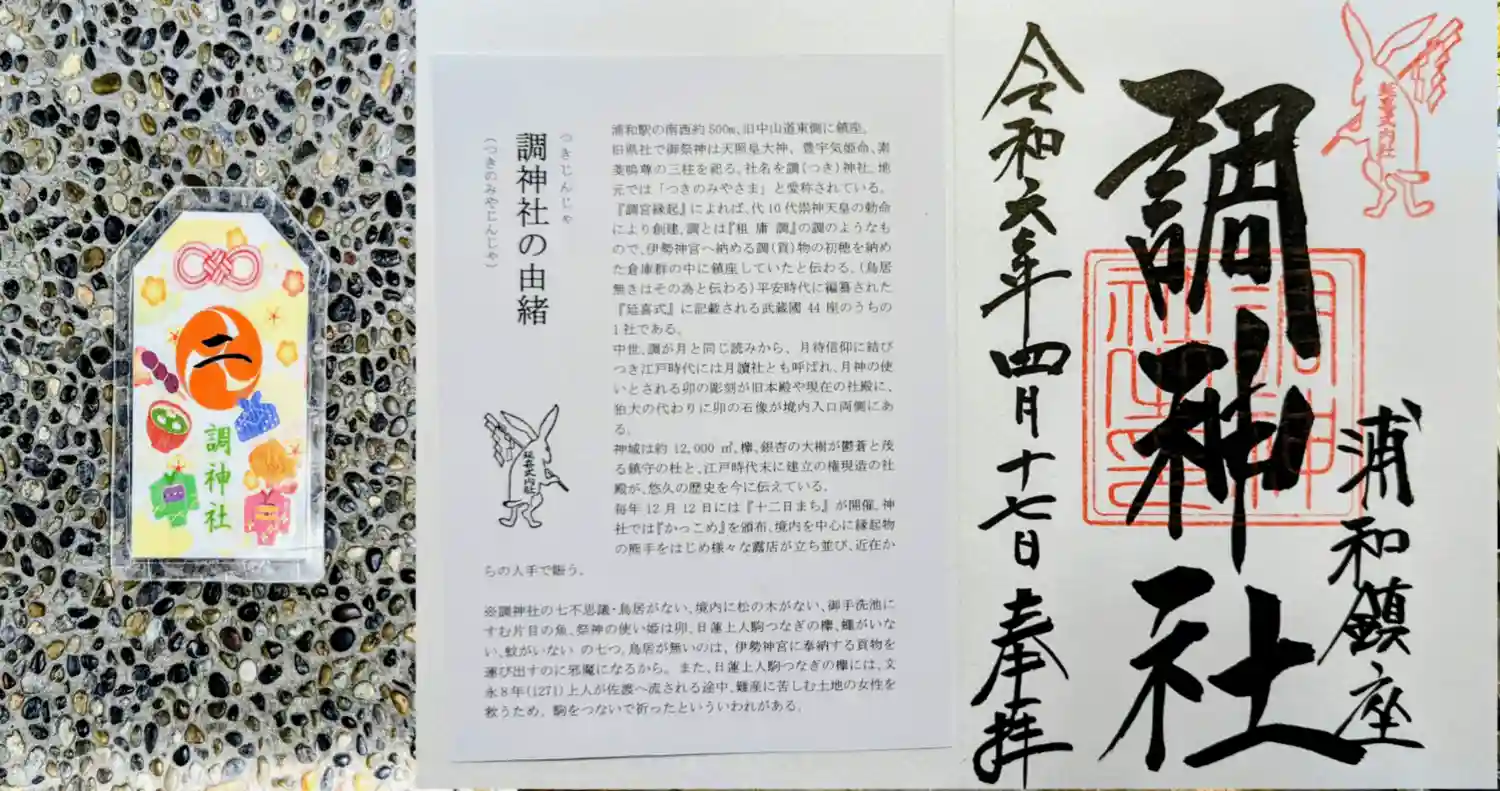 二
調神社
つきじんじゃ
調神社の由緒
(つきのみやじんじゃ)
浦和駅の南西約500m、旧中山道東側に鎮座。
旧県社で御祭神は天照皇大神、豊宇気姫命、素
戔嗚尊の三柱を祀る。社名を調(つき)神社。地
元では「つきのみやさま」と愛称されている。
『調宮縁起』によれば、代10代崇神天皇の勅命
により創建、調とは『租 庸 調』の調のようなも
ので、伊勢神宮へ納める調(貢)物の初穂を納め
た倉庫群の中に鎮座していたと伝わる。(鳥居
無きはその為と伝わる)平安時代に編纂された
『延喜式』に記載される武蔵國 44 座のうちの
1社である。
中世、調が月と同じ読みから、月待信仰に結び
つき江戸時代には月讀社とも呼ばれ、月神の使
いとされる卯の彫刻が旧本殿や現在の社殿に、
狛犬の代わりに卯の石像が境内入口両側にあ
る。
神域は約 12,000 ㎡、欅、銀杏の大樹が鬱蒼と茂
る鎮守の杜と、江戸時代末に建立の権現造の社
殿が、悠久の歴史を今に伝えている。
毎年12月12日には『十二日まち』が開催。神
社では『かっこめ』を頒布、境内を中心に縁起物
の熊手をはじめ様々な露店が立ち並び、近在か
らの人手で賑う。
延喜式内社
※調神社の七不思議・鳥居がない、境内に松の木がない、御手洗池に
すむ片目の魚、祭神の使い姫は卯、日蓮上人駒つなぎの欅、蠅がいな
い、蚊がいない の七つ。鳥居が無いのは、伊勢神宮に奉納する貢物を
運び出すのに邪魔になるから。また、日蓮上人駒つなぎの欅には、文
永8年(1271)上人が佐渡へ流される途中、難産に苦しむ土地の女性を
救うため、駒をつないで祈ったといういわれがある。
延喜式内社
浦和鎮座
調神社
令和六年四月十七日奉拝